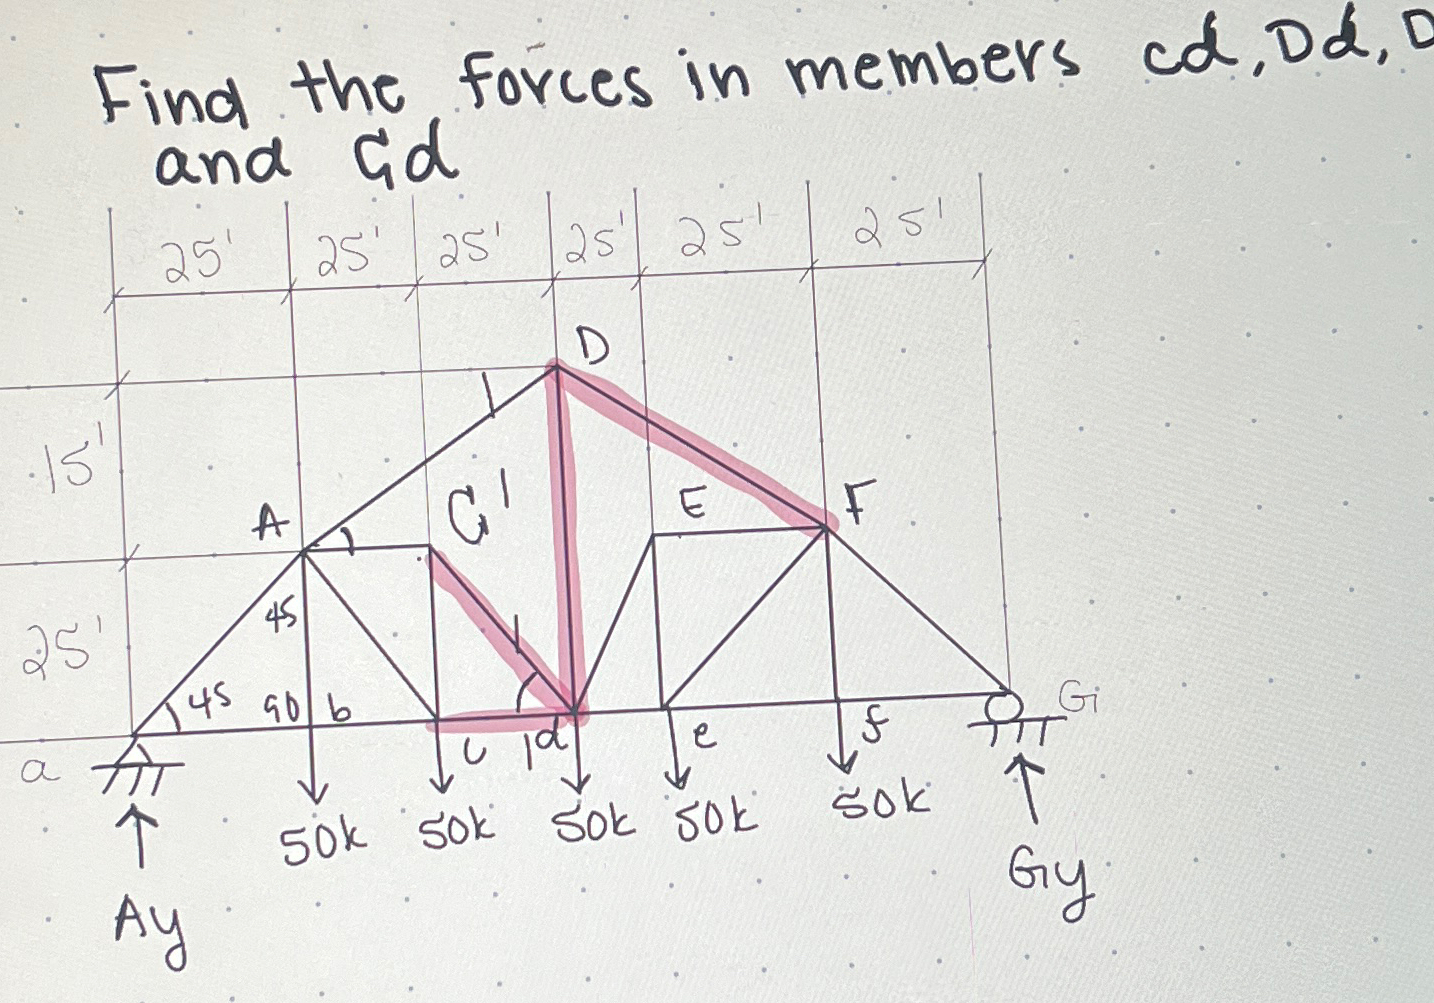 Find the forces in members cd, Dd, D
and Cd
25' 25' 25' 25' 25' 25'
D
15'
A C E F
45
25'
45 90 b
a c d e f G
50k 50k 50k 50k 50k
Ay Gy